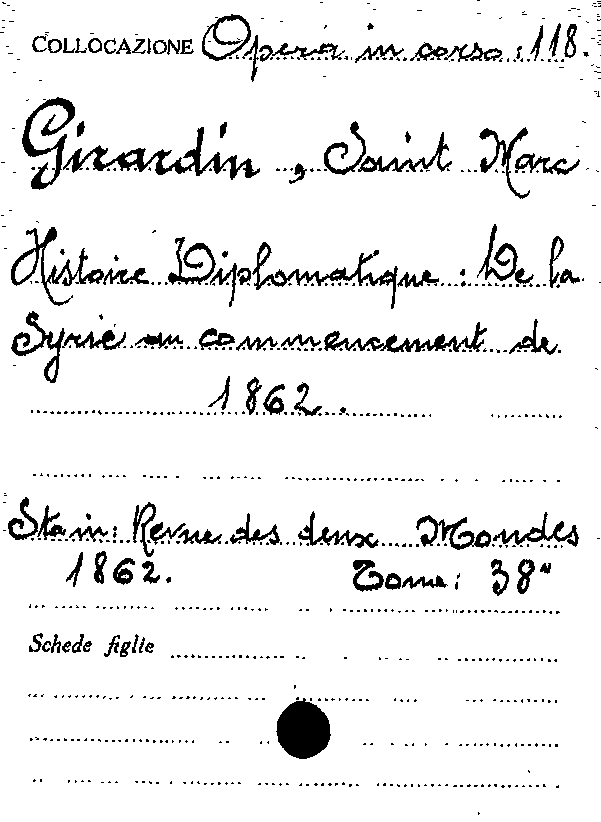 COLLOCAZIONE Opera in corso: 118.
Girardin, Saint Marc
Histoire Diplomatique: De la
Syrie au commencement de
1862.
Sta in: Revue des deux Mondes
1862. Tome: 38"
Schede figlie